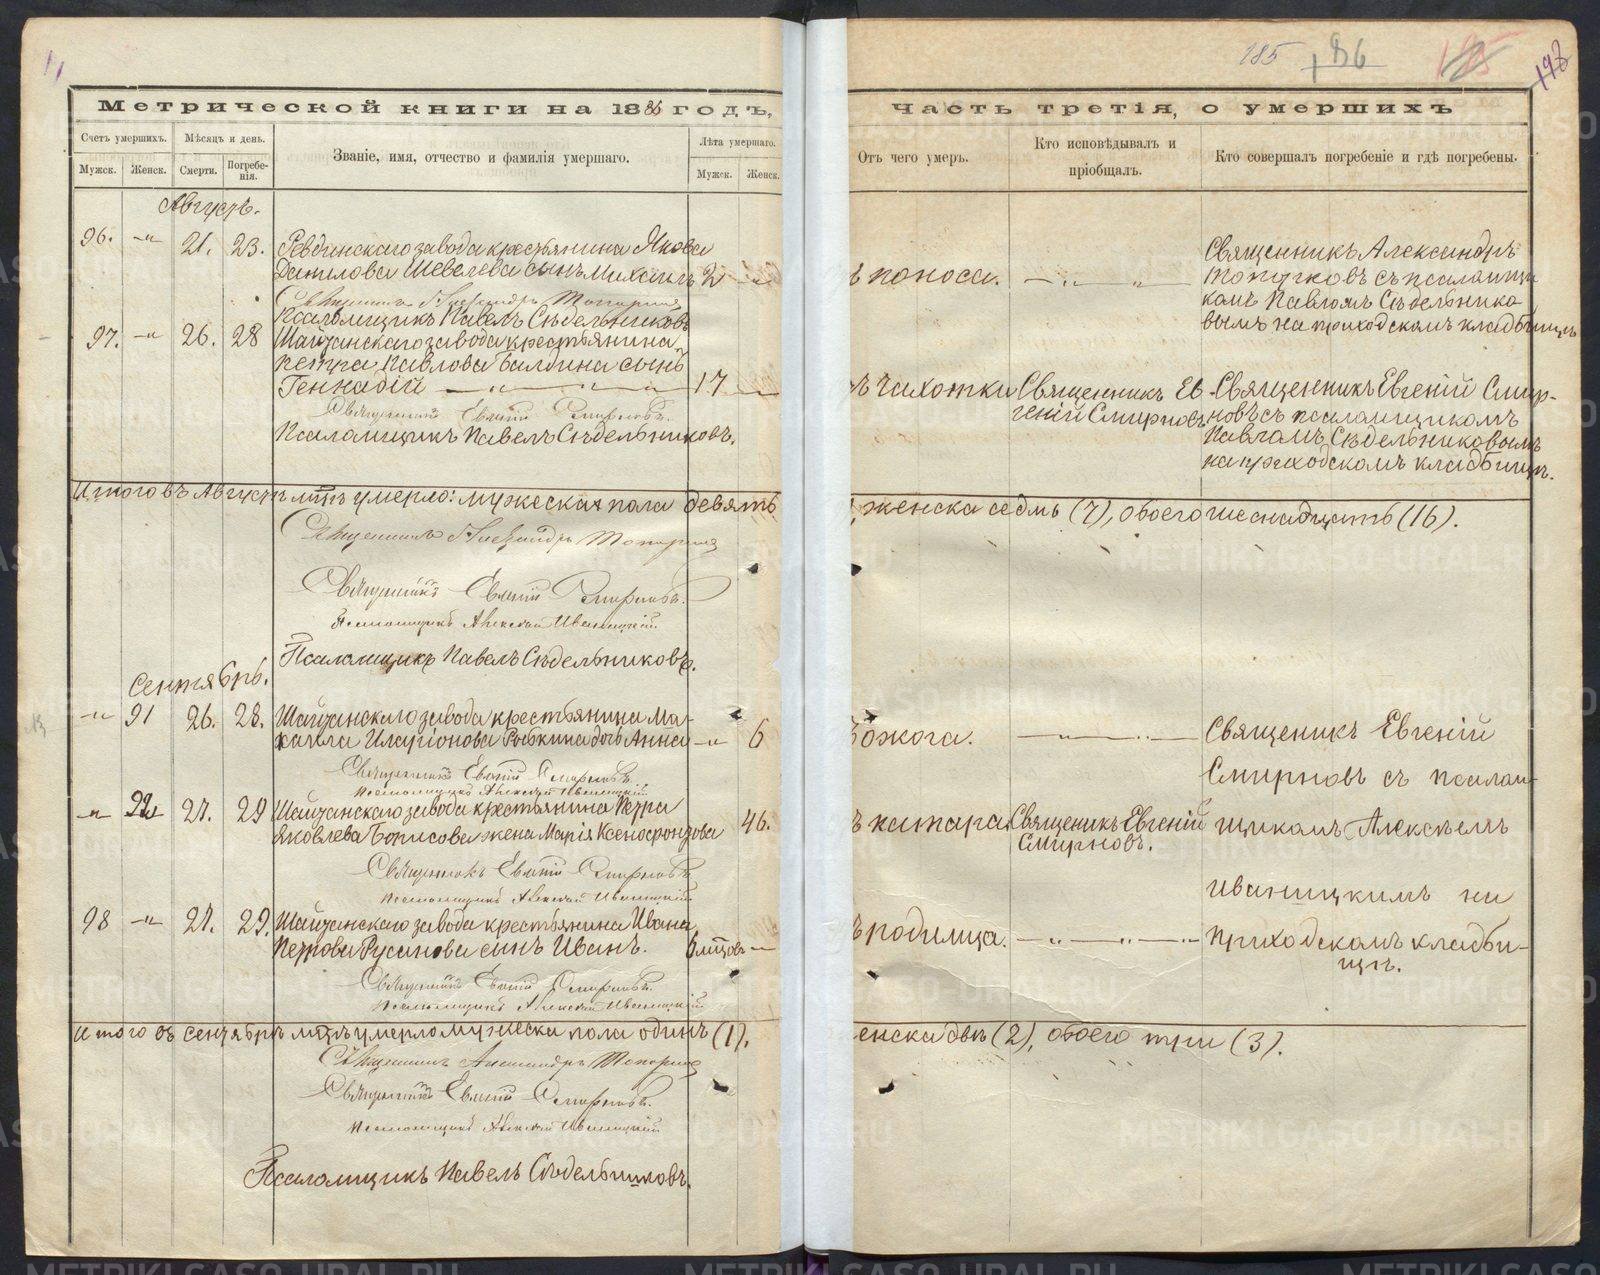 185 186 195 198
Метрической книги на 1886 годъ,
часть третія, о умершихъ
Счетъ умершихъ.
Мѣсяцъ и день.
Званіе, имя, отчество и фамилія умершаго.
Лѣта умершаго.
Мужск.
Женск.
Смерти.
Погребе-
нія.
Мужск.
Женск.
Отъ чего умеръ.
Кто исповѣдывалъ и
пріобщалъ.
Кто совершалъ погребеніе и гдѣ погребены.
Августъ.
96. -"- 21. 23. Ревдинскаго завода крестьянина Якова
Данилова Шевелева сынъ Михаилъ 2 -"-
ъ поноса. — " — " —
Священникъ Александръ
Топорковъ съ псаломщи
комъ Павломъ Сѣдельнико
вымъ на приходскомъ кладбищѣ
Священникъ Александръ Топорковъ
Псаломщикъ Павелъ Сѣдельниковъ
97. -"- 26. 28 Шайтанскаго завода крестьянина
Петра Павлова Балдина сынъ
Геннадій — " — " — " 17 —
ъ чахотки
Священникъ Ев
геній Смирновъ
Священникъ Евгеній Смир-
новъ съ псаломщикомъ
Павломъ Сѣдельниковымъ
на приходскомъ кладбищѣ.
Священникъ Евгеній Смирновъ.
Псаломщикъ Павелъ Сѣдельниковъ.
Итого въ Августѣ мцѣ умерло: мужеска пола девять
женска седмь (7), обоего шеснадцать (16).
Священникъ Александръ Топорковъ
Священникъ Евгеній Смирновъ.
Псаломщикъ Алексѣй Иваницкій.
Псаломщикъ Павелъ Сѣдельниковъ.
Сентябрь.
-"- 91 26. 28. Шайтанскаго завода крестьянина Ма-
каила Иларіонова Рыбкина дочь Анна -"- 6
ожога. — " — " —
Священикъ Евгеній
Смирновъ съ псалом-
Священникъ Евгеній Смирновъ.
Псаломщикъ Алексѣй Иваницкій
-"- 92 27. 29 Шайтанскаго завода крестьянина Петра
Яковлева Борисова жена Марія Ксенофонтова 46.
ъ катара
Священикъ Евгеній
Смирновъ.
щикомъ Алексѣемъ
Иваницкимъ на
Священникъ Евгеній Смирновъ
Псаломщикъ Алексѣй Иваницкій
98 -"- 27. 29. Шайтанскаго завода крестьянина Ивана
Петрова Русанова сынъ Иванъ. 6 мцовъ —
ъ родимца. — " — " — "
приходскомъ кладби-
щѣ.
Священникъ Евгеній Смирновъ.
Псаломщикъ Алексѣй Иваницкій
Итого въ сентябрѣ мцѣ умерло мужеска пола одинъ (1).
енска двѣ (2), обоего три (3).
Священникъ Александръ Топорковъ
Священникъ Евгеній Смирновъ.
Псаломщикъ Алексѣй Иваницкій
Псаломщикъ Павелъ Сѣдельниковъ.
METRIKI.GASO-URAL.RU